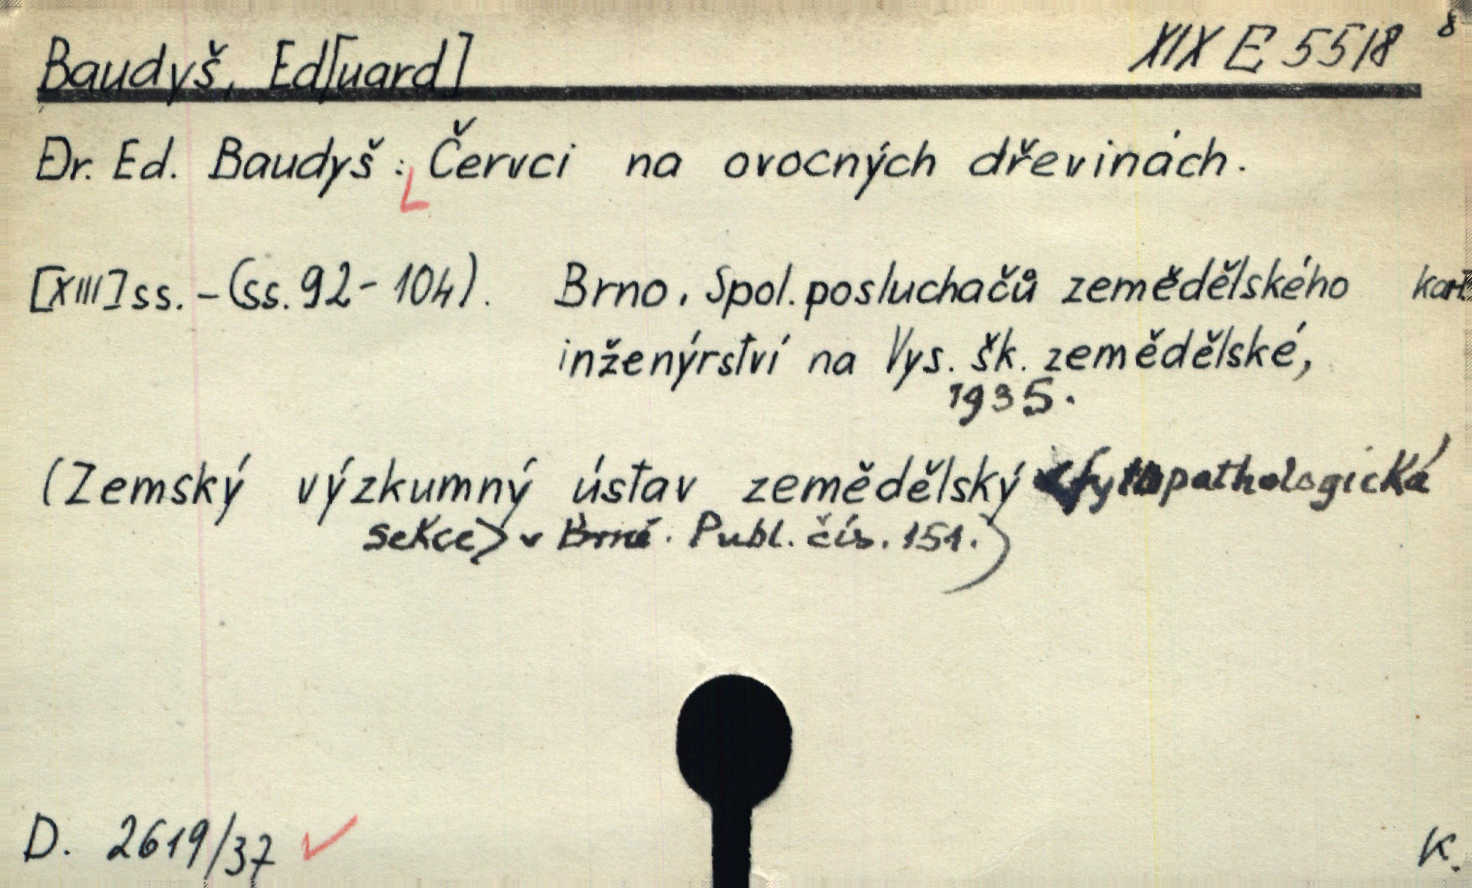 Baudyš, Ed[uard] XIX E 55/8 8
Dr. Ed. Baudyš: Červci na ovocných dřevinách.
[XIII] ss. – (ss. 92 - 104). Brno, Spol. posluchačů zemědělského kart
inženýrství na Vys. šk. zemědělské,
1935.
(Zemský výzkumný ústav zemědělský <fytopathologická
sekce> v Brně. Publ. čís. 151.)
D. 2619/37 K.